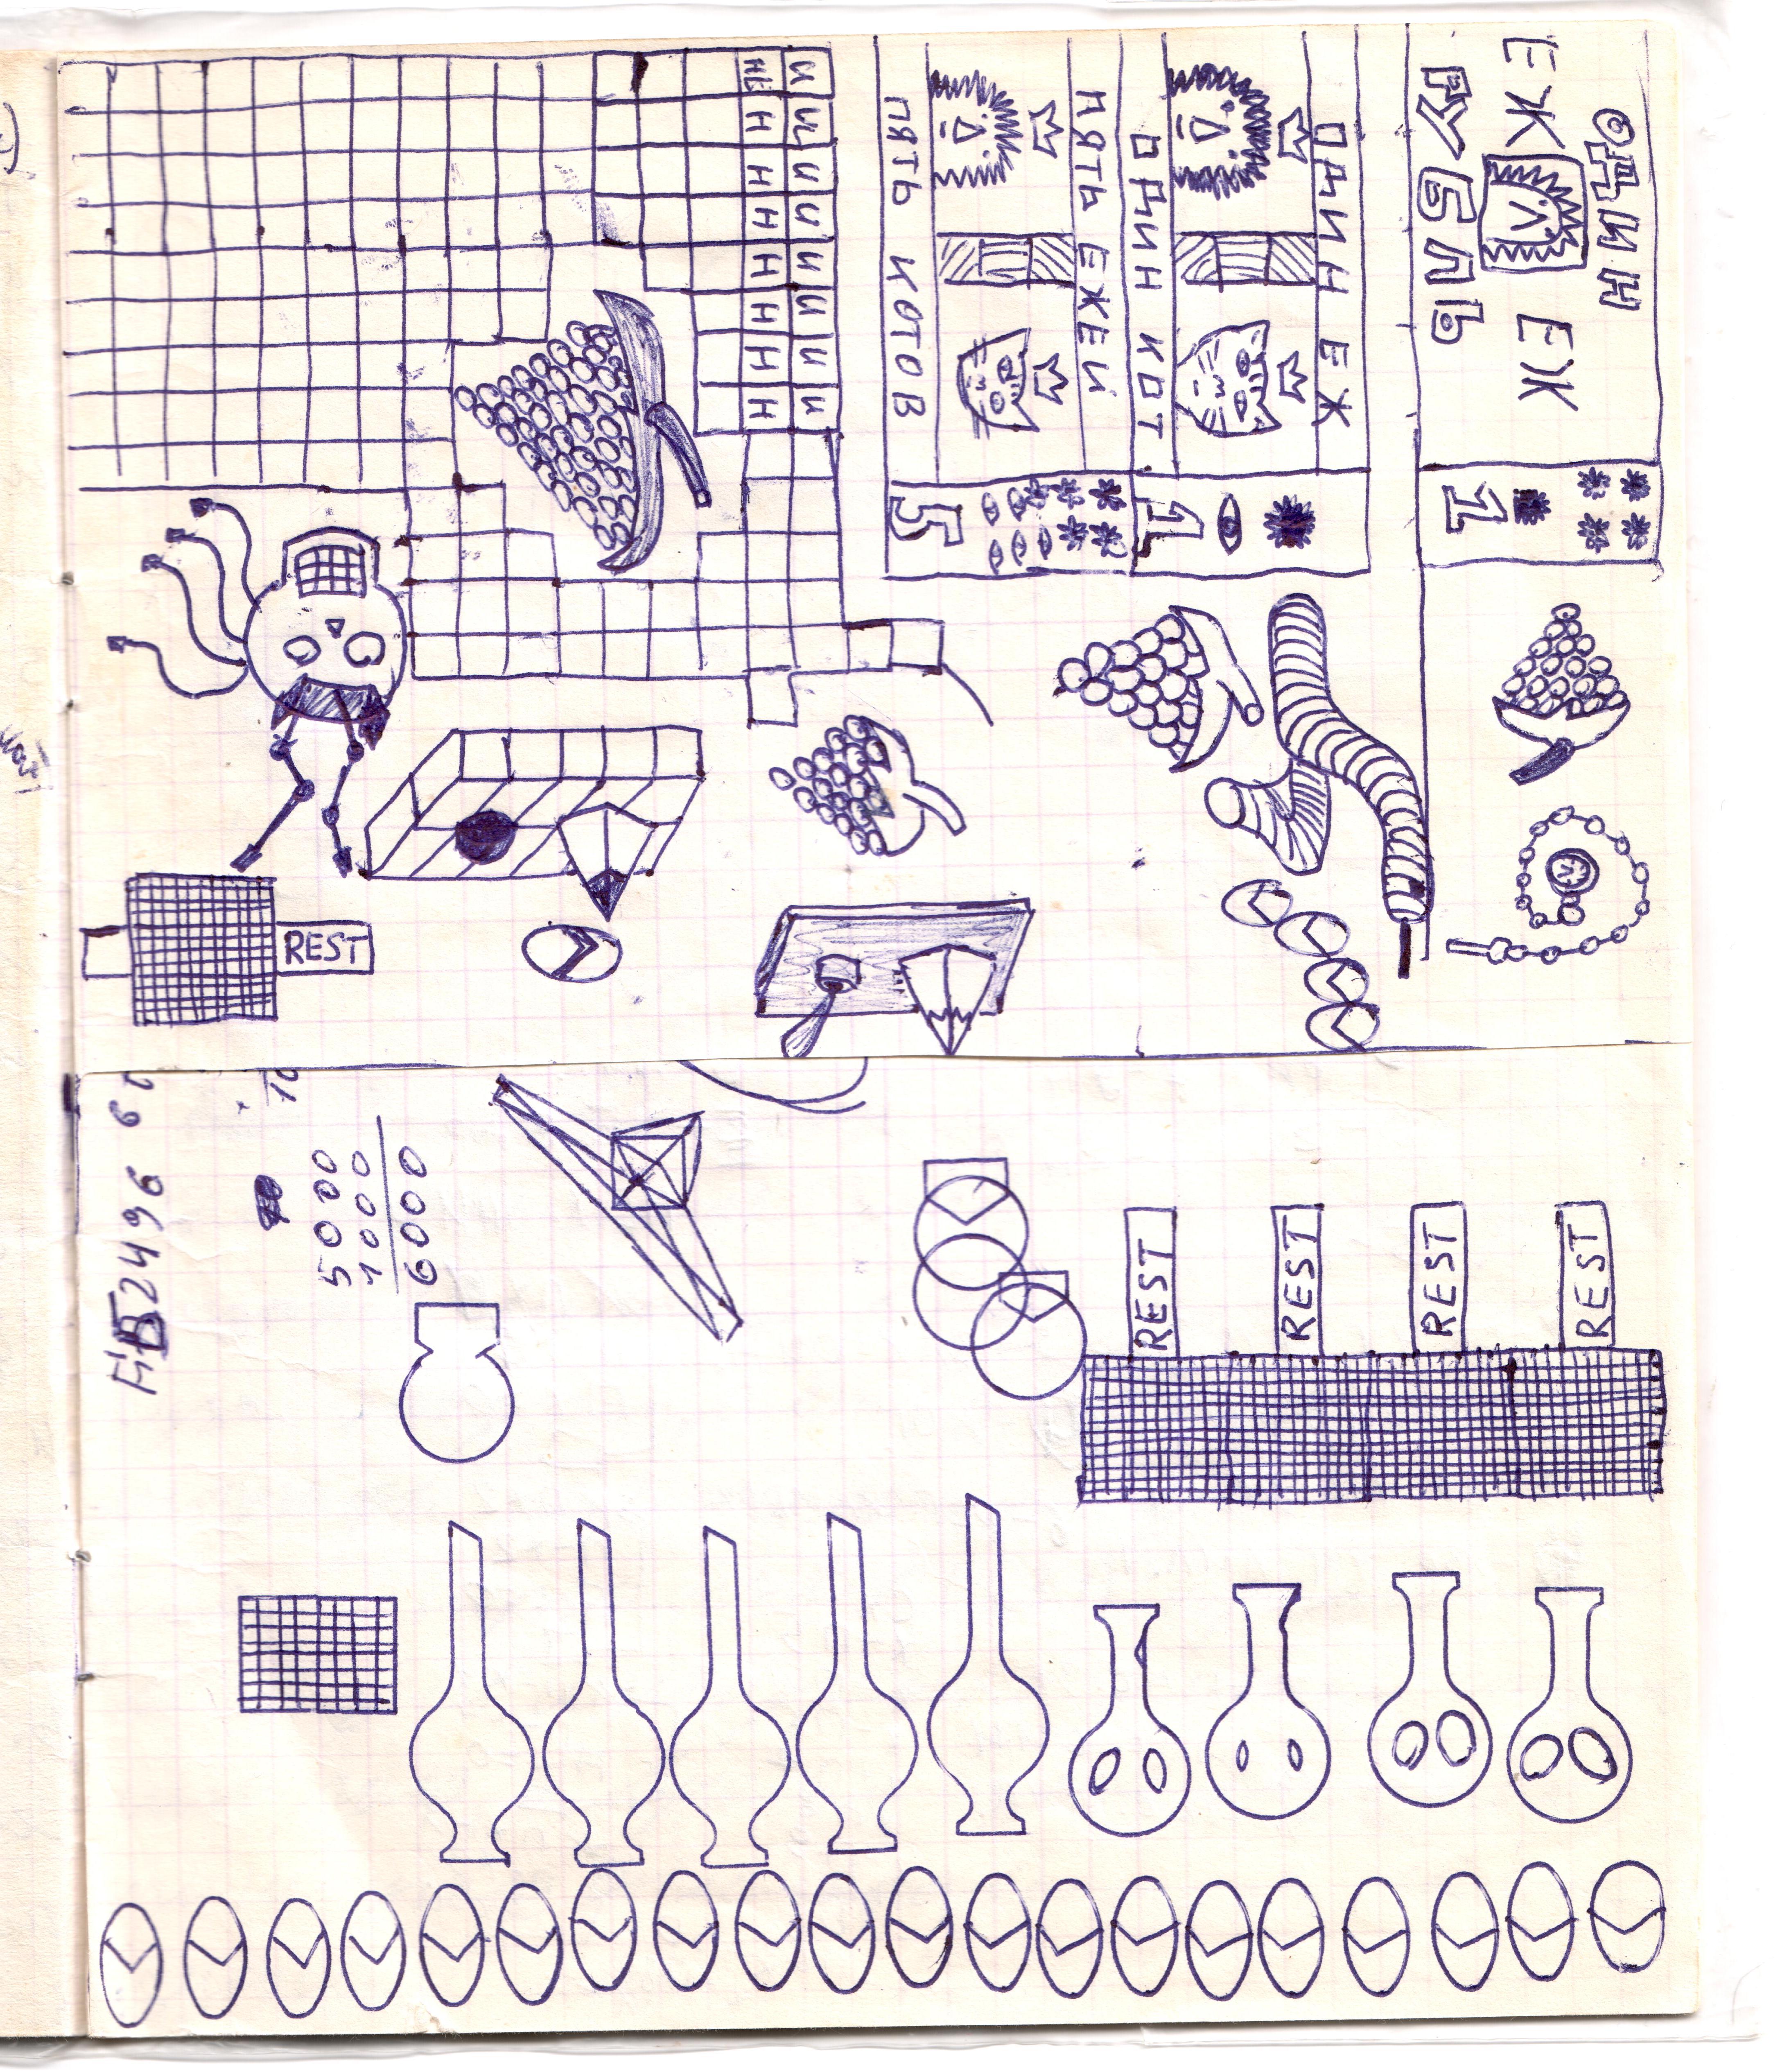 ОДИН
ЕЖ ЕЖ
РУБЛЬ
1
ОДИН ЕЖ
ОДИН КОТ
1
ПЯТЬ ЕЖЕЙ
ПЯТЬ КОТОВ
5
И И И И И И И И
Н Н Н Н Н Н Н
REST
5000
1000
6000
REST
REST
REST
REST